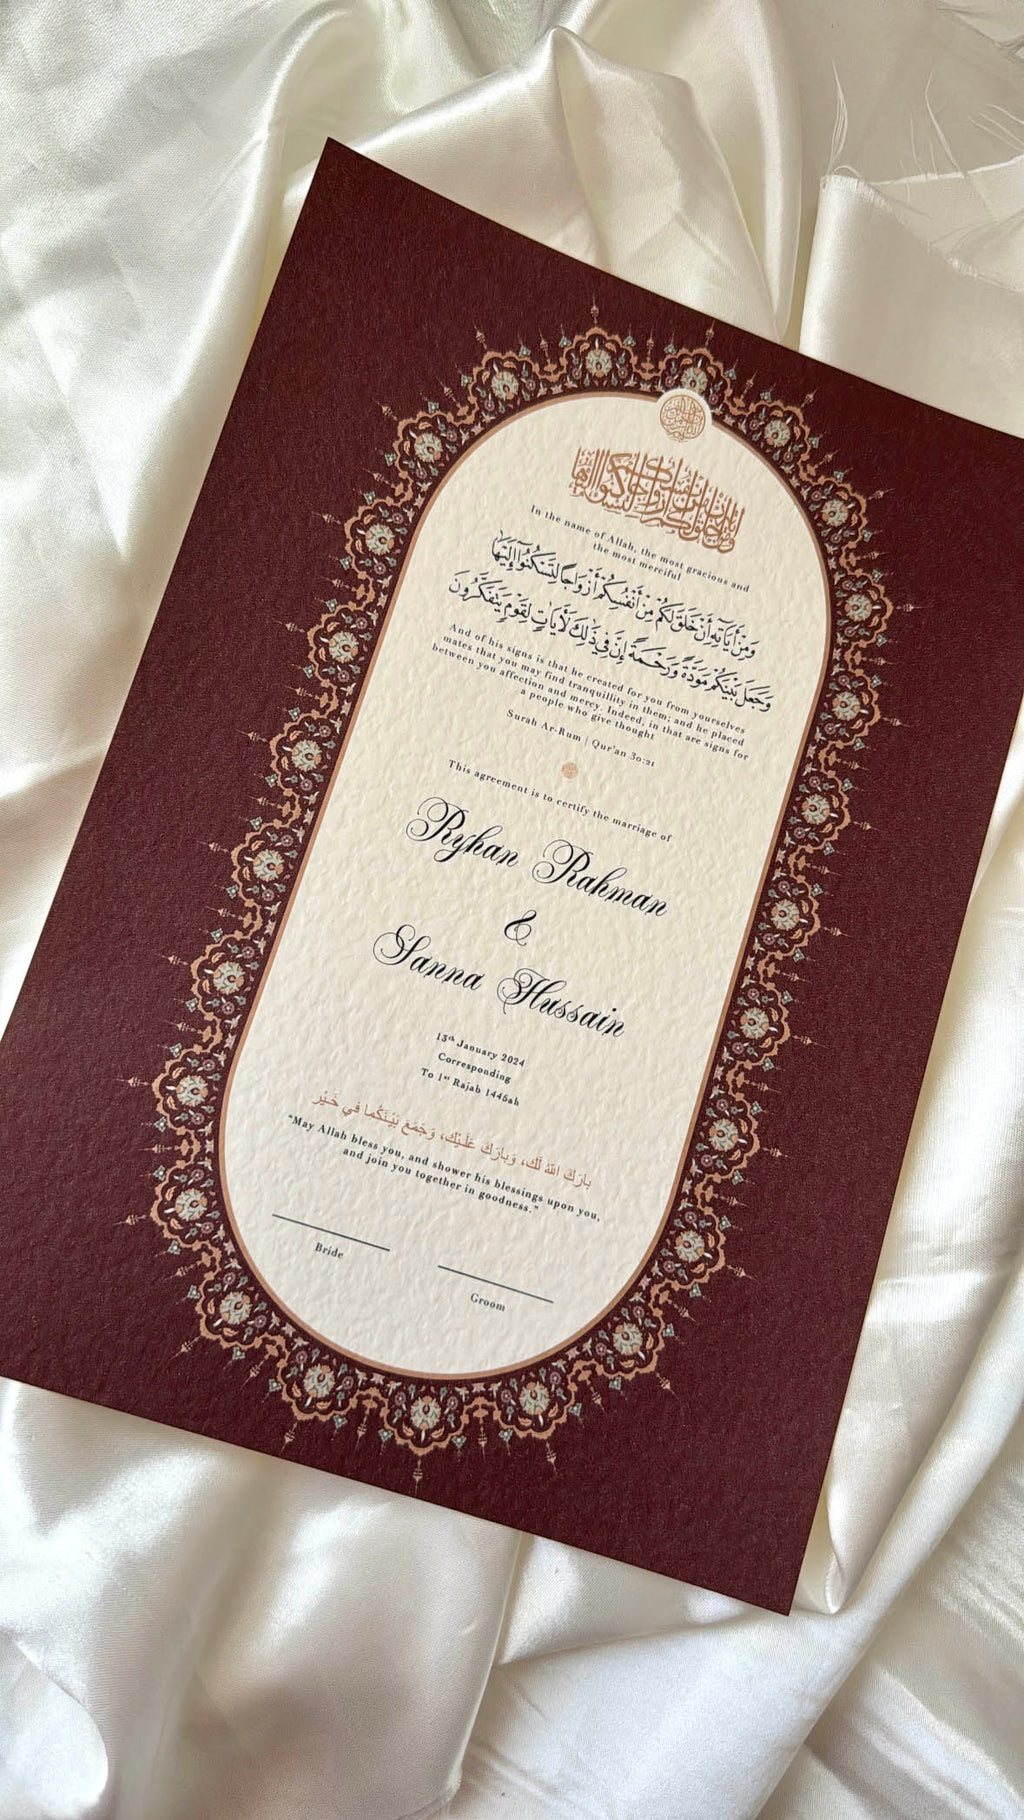 In the name of Allah, the most gracious and
the most merciful
وَمِنْ أَيَاتِهِ أَنْ خَلَقَ لَكُمْ مِنْ أَنْفُسِكُمْ أَزْوَاجًا لِتَسْكُنُوا إِلَيْهَا
وَجَعَلَ بَيْنَكُمْ مَوَدَّةً وَرَحْمَةً إِنَّ فِي ذَٰلِكَ لَأَيَاتٍ لِقَوْمٍ يَتَفَكَّرُونَ
And of his signs is that he created for you from yourselves
mates that you may find tranquillity in them; and he placed
between you affection and mercy. Indeed, in that are signs for
a people who give thought
Surah Ar-Rum | Qur'an 30:21
This agreement is to certify the marriage of
Ryhan Rahman
&
Sanna Hussain
13th January 2024
Corresponding
To 1st Rajab 1445ah
بارَكَ اللهُ لَك، وَبارَكَ عَلَـيْك، وَجَمَعَ بَيْـنَكُما في خَـيْر
"May Allah bless you, and shower his blessings upon you,
and join you together in goodness."
Bride
Groom